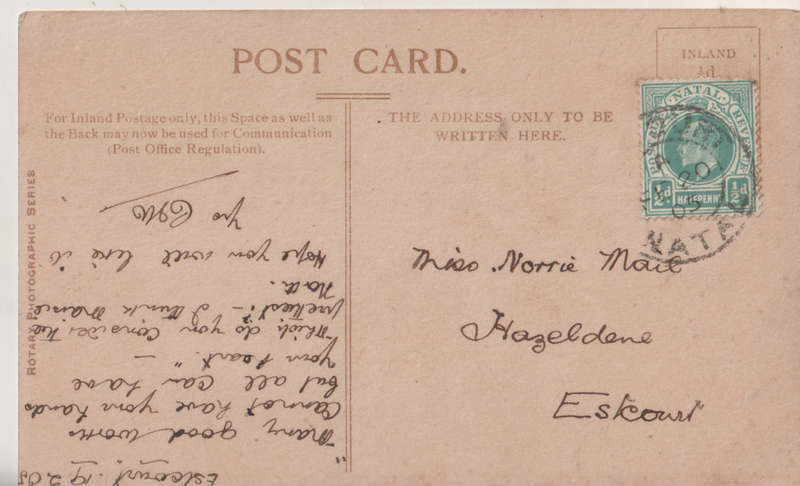 POST CARD.
INLAND
½d
For Inland Postage only, this Space as well as
the Back may now be used for Communication
(Post Office Regulation).
THE ADDRESS ONLY TO BE
WRITTEN HERE.
ROTARY PHOTOGRAPHIC SERIES
NATAL
POSTAGE
REVENUE
½d
HALFPENNY
½d
20
05
NATAL
Miss Norrie Mail
Hazeldene
Estcourt
Estcourt. 19.2.05
"Many good works
Cannot have your hands
but all can have
your heart." —
Which do you consider the
prettiest? - I think Marie
Hope you will like it